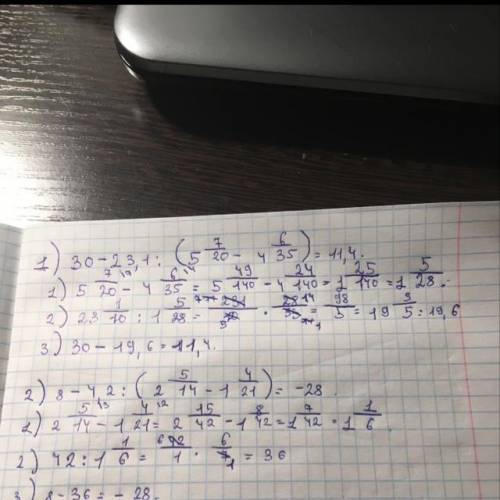 1) 30 - 23,1 : (5 7/20 - 4 6/35) = 11,4.
1) 5 7/20 - 4 6/35 = 5 49/140 - 4 24/140 = 1 25/140 = 1 5/28.
2) 23 1/10 : 1 5/28 = 231/10 · 28/33 = 98/5 = 19 3/5 = 19,6
3) 30 - 19,6 = 11,4.
2) 8 - 42 : (2 5/14 - 1 4/21) = -28.
1) 2 5/14 - 1 4/21 = 2 15/42 - 1 8/42 = 1 7/42 = 1 1/6.
2) 42 : 1 1/6 = 42/1 · 6/7 = 36
3) 8 - 36 = - 28.